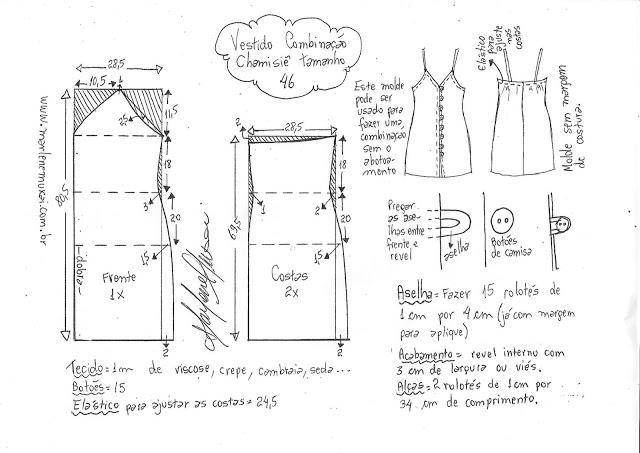 Vestido Combinação
Chamisiê tamanho
46
28,5
10,5
1
25
11,5
18
3
20
1,5
Frente
1x
dobra
2
www.marlenemukai.com.br
2
28,5
18
1
2
20
1,5
69,5
Costas
2x
2
Este molde
pode ser
usado para
fazer uma
combinação
sem o
abotoa-
mento
Elástico
para
ajuste
nas
costas
Molde sem margem
de costura.
Pregar
as ase-
lhas entre
frente e
revel
aselha
Botões
de camisa
Aselha = Fazer 15 rolotés de
1 cm por 4 cm (já com margem
para aplique)
Acabamento = revel interno com
3 cm de largura ou viés.
Alças = 2 rolotés de 1 cm por
34 cm de comprimento.
Tecido = 1m de viscose, crepe, cambraia, seda...
Botões = 15
Elástico para ajustar as costas = 24,5